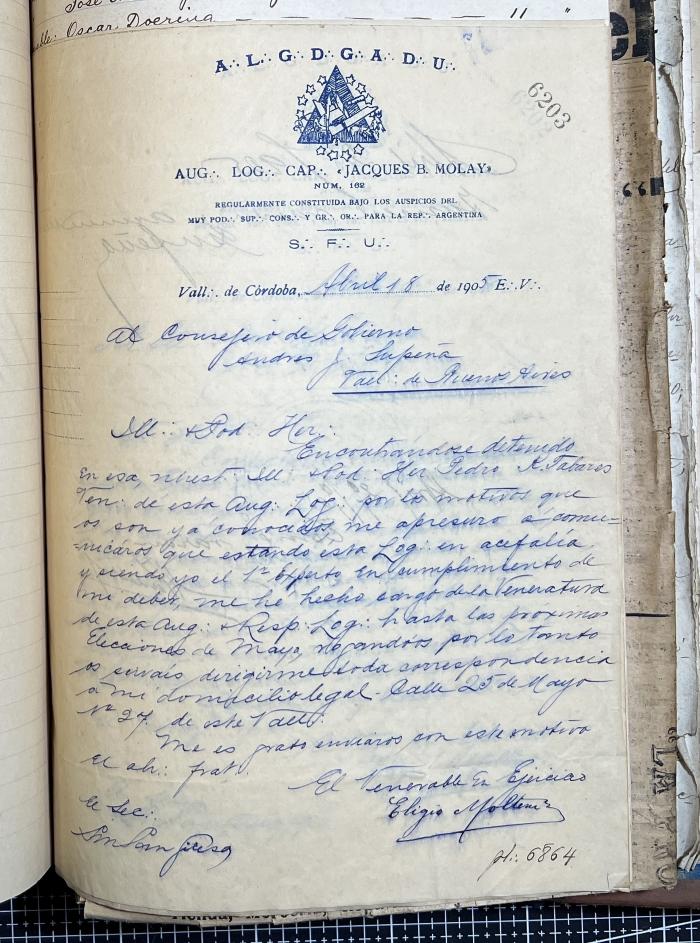 Oscar Doerina — — — — — — 11 "
6203
A∴ L∴ G∴ D∴ G∴ A∴ D∴ U∴
AUG∴ LOG∴ CAP∴ «JACQUES B. MOLAY»
NUM. 162
REGULARMENTE CONSTITUIDA BAJO LOS AUSPICIOS DEL
MUY POD∴ SUP∴ CONS∴ Y GR∴ OR∴ PARA LA REP∴ ARGENTINA
S∴ F∴ U∴
Vall∴ de Córdoba, Abril 18 de 1905 E∴ V∴
Al Consejero de Gobierno
Andres J. Supeña
Vall∴ de Buenos Aires
Ill∴ & Pod∴ Her∴
Encontrándose detenido
en esa, nuest∴ Ill∴ & Pod∴ Her∴ Pedro N. Tabares
Ven∴ de esta Aug∴ Log∴ por lo motivos que
os son ya conocidos me apresuro á comu=
=nicaros que estando esta Log∴ en acefalia
y siendo yo el 1er Experto en cumplimiento de
mi deber, me he hecho cargo de la Veneratura
de esta Aug∴ & Resp∴ Log∴ hasta las proximas
Elecciones de Mayo, rogandoos por lo tanto
os sirvais dirigirme toda correspondencia
a mi domicilio legal Calle 25 de Mayo
Nº 27 de este Vall∴
Me es grato enviaros con este motivo
el ab∴ frat∴
El Venerable En Ejercicio
Eligio Molteni
El Sec∴
pl∴ 6864